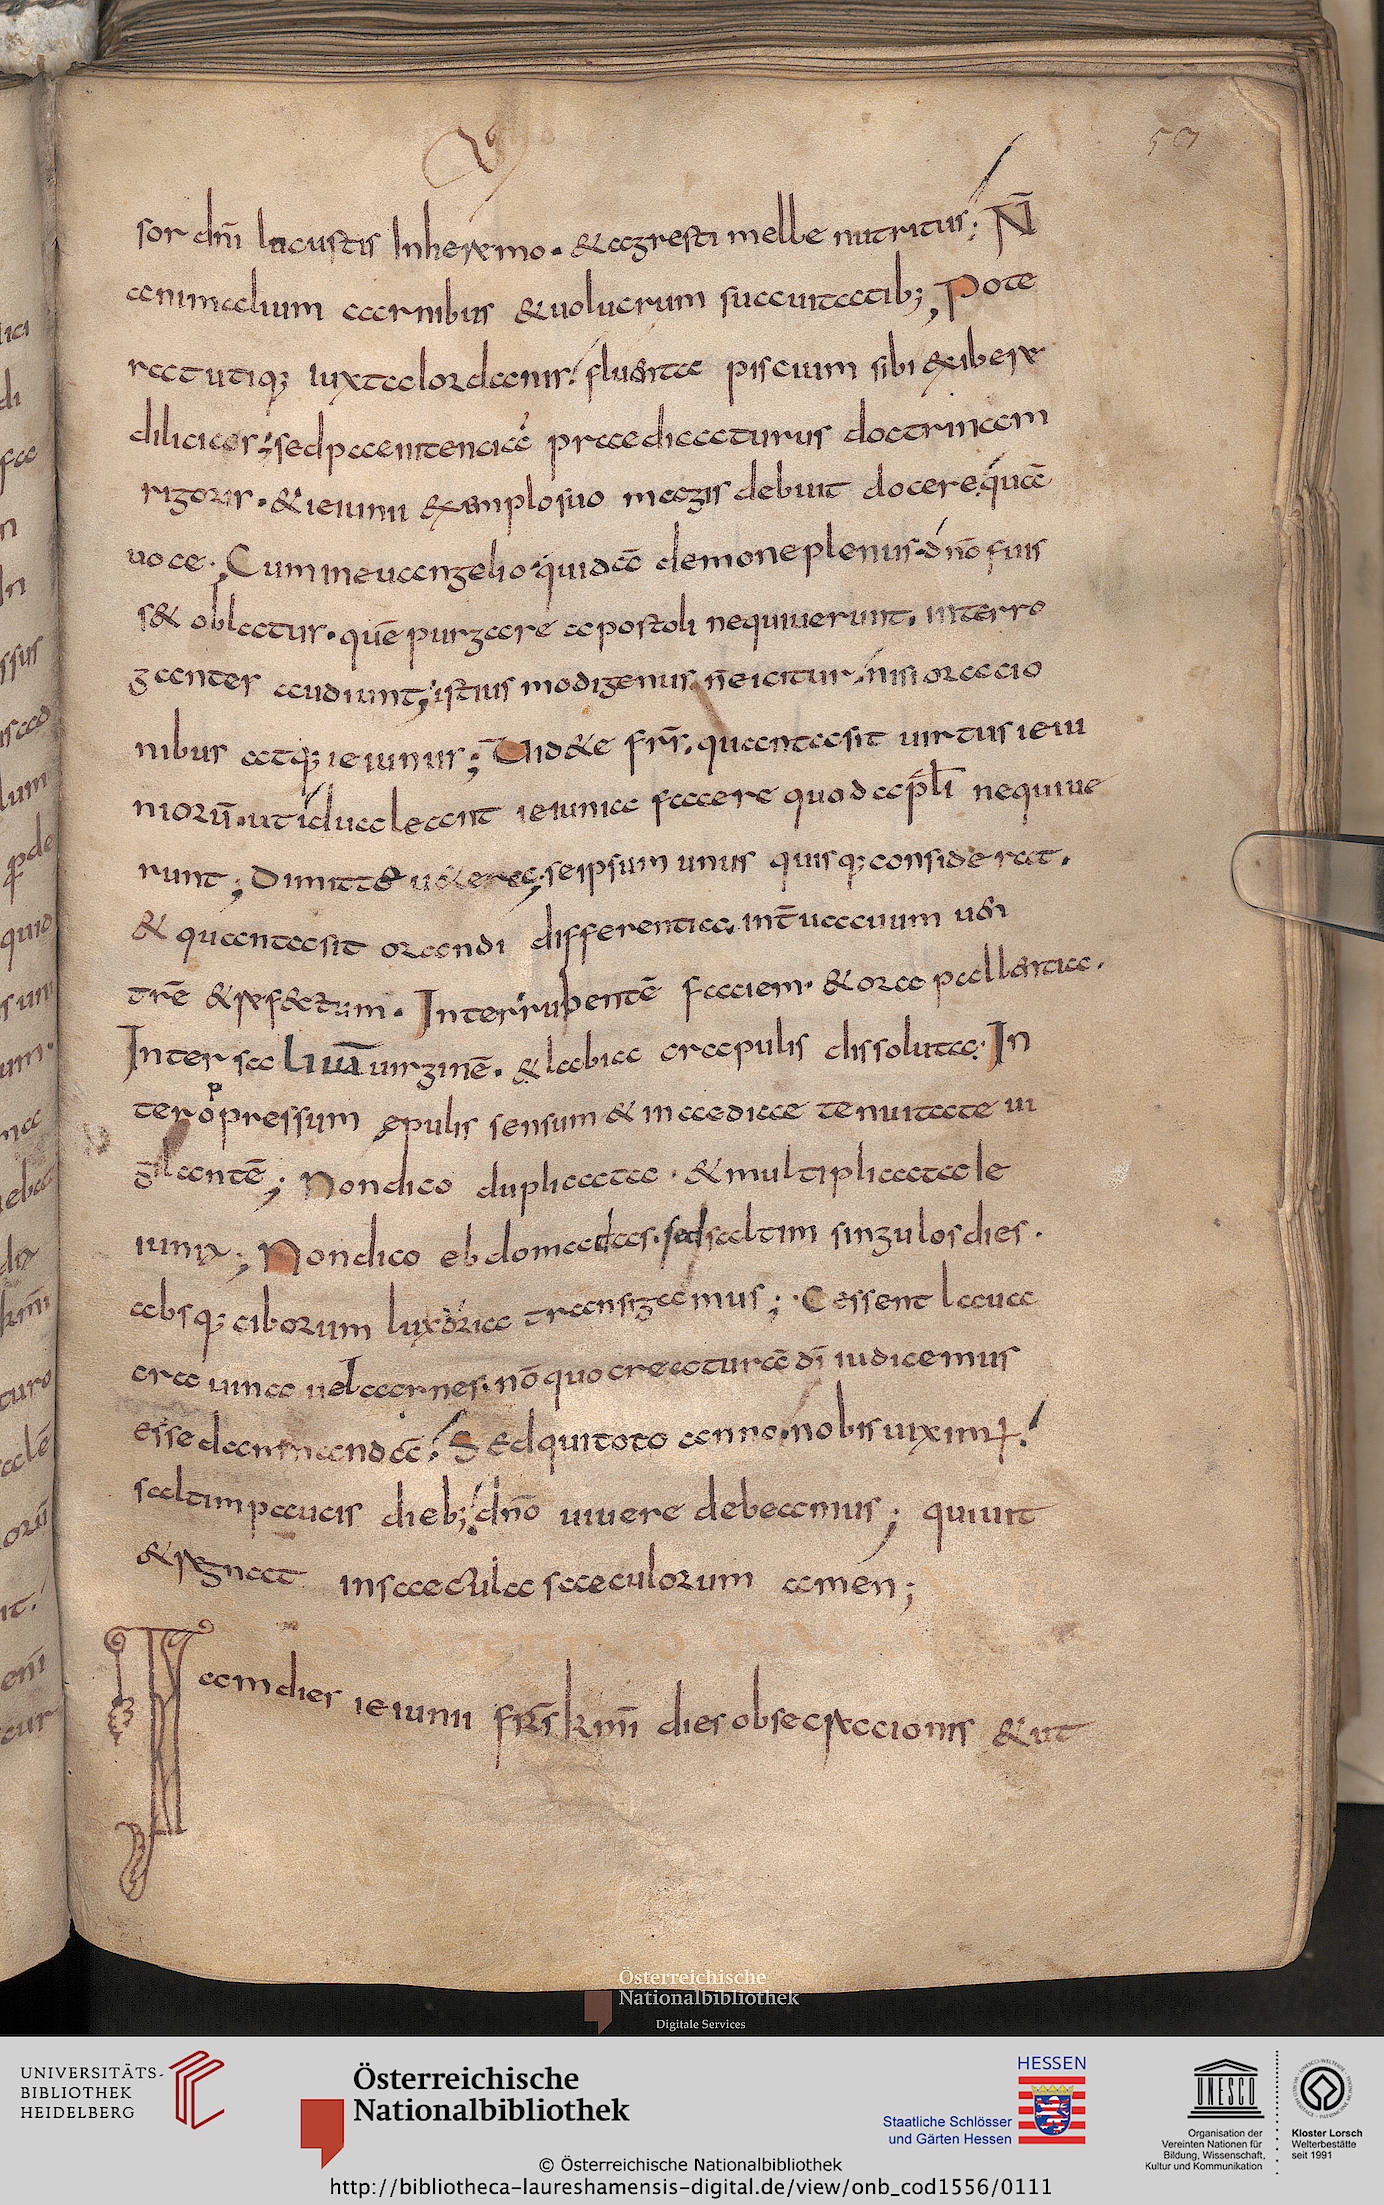 50
sor dnī lacustis Inheremo. & agresti melle nutritus; N̄
animalium carnibus & uolucrum suauitatib; Pote
rat utiq; Iuxta Iordanis fluenta piscium sibi exibere
dilicias; sed paenitenciae praedicaturus doctrinam
rigoris. & ieiunii exemplo suo magis debuit docere quā
uoce. Cum in euangelio quidā demone plenus. dn̄o fuis
s& oblatus. quē purgare apostoli nequiuerunt. interro
gantes audiunt; istius modi genus n̄ eicitur, nisi oracio
nibus atq; ieiuniis; Uid&e frr̄s, quanta sit uirtus ieiu
niorū. ut id ualeant ieiunia facere quod apl̄i nequiue
runt; Dimitte u&era; se ipsum unus quisq; considerat.
& quanta sit orandi differentia. int̄ uacuum uen
trē & refectum. Inter rubentē faciem. & ora pallentia.
Inter saliuā uirginē. & labia crapulis dissoluta. In
ter oppressum epulis sensum & inaediae tenuitate ui
gilantē; Non dico duplicata. & multiplicata Ie
iunia; Non dico ebdomadas. sed saltim singulos dies.
absq; ciborum luxoria transigamus; Cessent laua
cra uina uel carnes. nō quo creaturā dī iudicemus
esse damnandā; Sed qui toto anno. nobis uiximus,
saltim paucis dieb; dn̄o uiuere debeamus; qui uiit
& regnat in saecula saeculorum amen;
Nam dies ieiunii frr̄s km̄i dies obsecracionis & ut
Österreichische
Nationalbibliothek
Digitale Services
UNIVERSITÄTS-
BIBLIOTHEK
HEIDELBERG
Österreichische
Nationalbibliothek
HESSEN
Staatliche Schlösser
und Gärten Hessen
UNESCO
Organisation der
Vereinten Nationen für
Bildung, Wissenschaft,
Kultur und Kommunikation
Kloster Lorsch
Welterbestätte
seit 1991
© Österreichische Nationalbibliothek
http://bibliotheca-laureshamensis-digital.de/view/onb_cod1556/0111